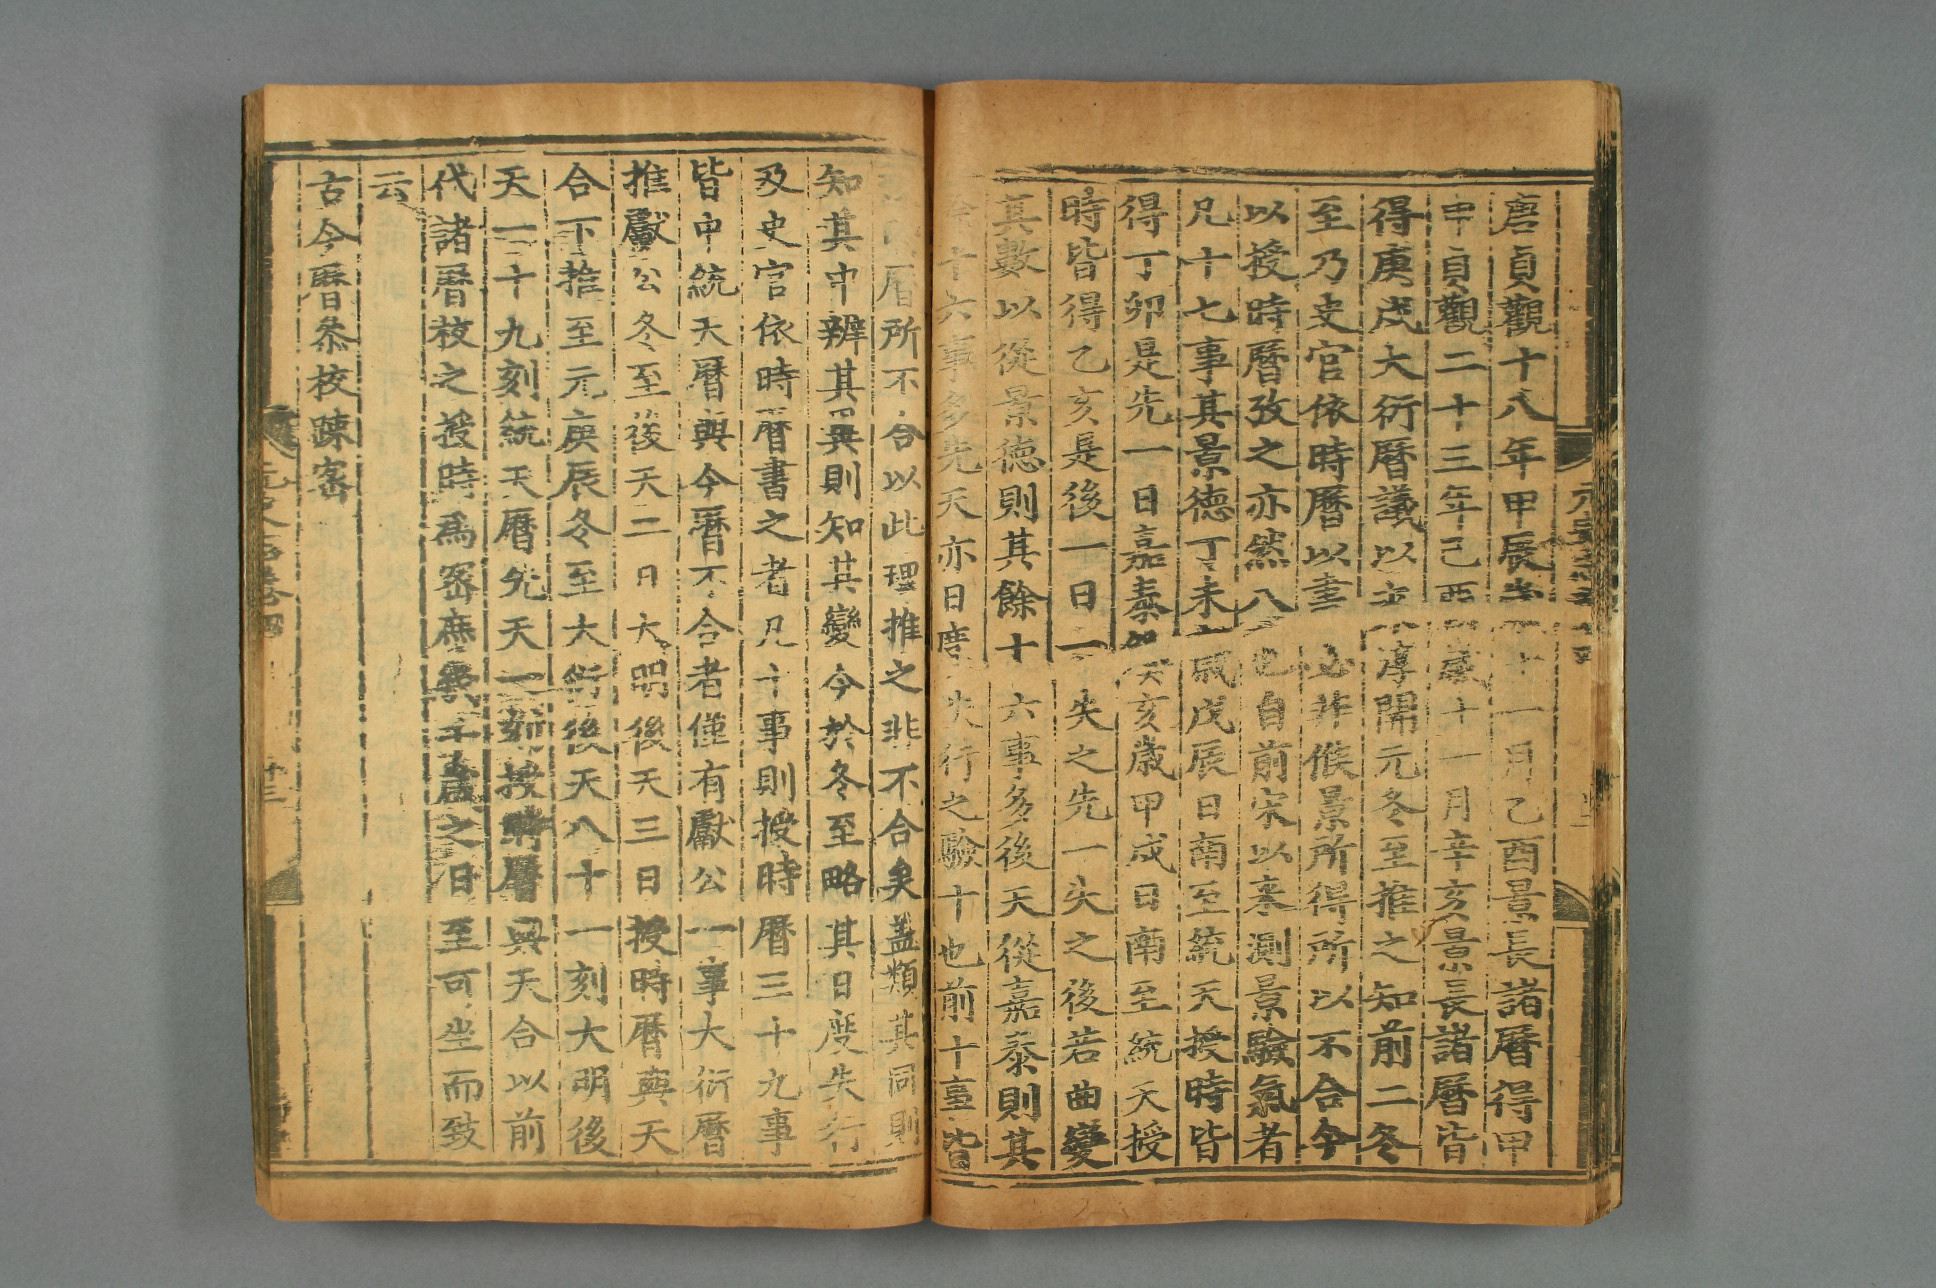 唐貞觀十八年甲辰歲十一月乙酉景長諸曆得甲
申貞觀二十三年己酉歲十一月辛亥景長諸曆皆
得庚戌大衍曆議以淳開元冬至推之知前二冬
至乃史官依時曆以書必非候景所得所以不合今
以授時曆攷之亦然八也自前宋以來測景驗氣者
凡十七事其景德丁未歲戊辰日南至統天授時皆
得丁卯是先一日嘉泰癸亥歲甲戌日南至統天授
時皆得乙亥是後一日一失之先一失之後若曲變
其數以從景德則其餘十六事多後天從嘉泰則其
餘十六事多先天亦日度失行之驗十也前十事皆
曆所不合以此理推之非不合矣蓋類其同則
知其中辨其異則知其變今於冬至略其日度失行
及史官依時曆書之者凡十事則授時曆三十九事
皆中統天曆與今曆不合者僅有獻公一事大衍曆
推獻公冬至後天二日大明後天三日授時曆與天
合下推至元庚辰冬至大衍後天八十一刻大明後
天一十九刻統天曆先天一刻授時曆與天合以前
代諸曆校之授時為密庶幾千歲之日至可坐而致
云
古今曆叅校踈密